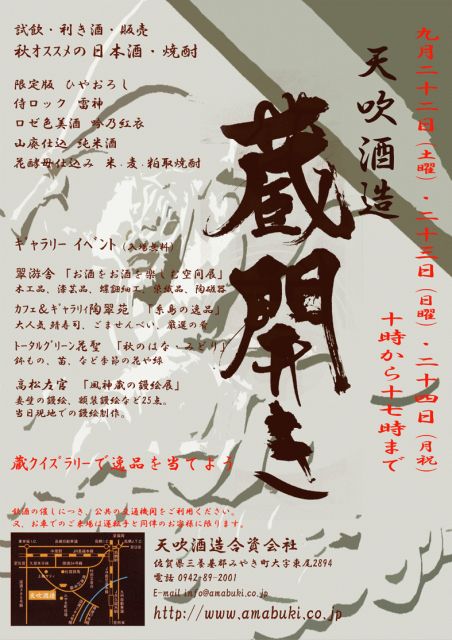 九月二十二日（土曜）・二十三日（日曜）・二十四日（月祝）
十時から十七時まで
天吹酒造
蔵開き
試飲・利き酒・販売
秋オススメの日本酒・焼酎
限定版 ひやおろし
侍ロック 雷神
ロゼ色美酒 吟乃紅衣
山廃仕込 純米酒
花酵母仕込み 米・麦・粕取焼酎
ギャラリー イベント（入場無料）
翠游舎 「お酒をお酒を楽しむ空間展」
木工品、漆芸品、螺鈿細工、染織品、陶磁器
カフェ&ギャラリィ陶翠苑 「糸島の逸品」
大人気 鯖寿司、ごませんべい、厳選の肴
トータルグリーン花聖 「秋のはな・みどり」
鉢もの、苗、など季節の花や緑
高松左官 「風神蔵の鏝絵展」
妻壁の鏝絵、額装鏝絵など25点。
当日現地での鏝絵制作。
蔵クイズラリーで逸品を当てよう
飲酒の催しにつき、公共の交通機関をご利用ください。
又、お車でのご来場は運転手と同伴のお客様に限ります。
天吹酒造
天吹酒造合資会社
佐賀県三養基郡みやき町大字東尾2894
電話 0942-89-2001
E-mail info@amabuki.co.jp
http://www.amabuki.co.jp